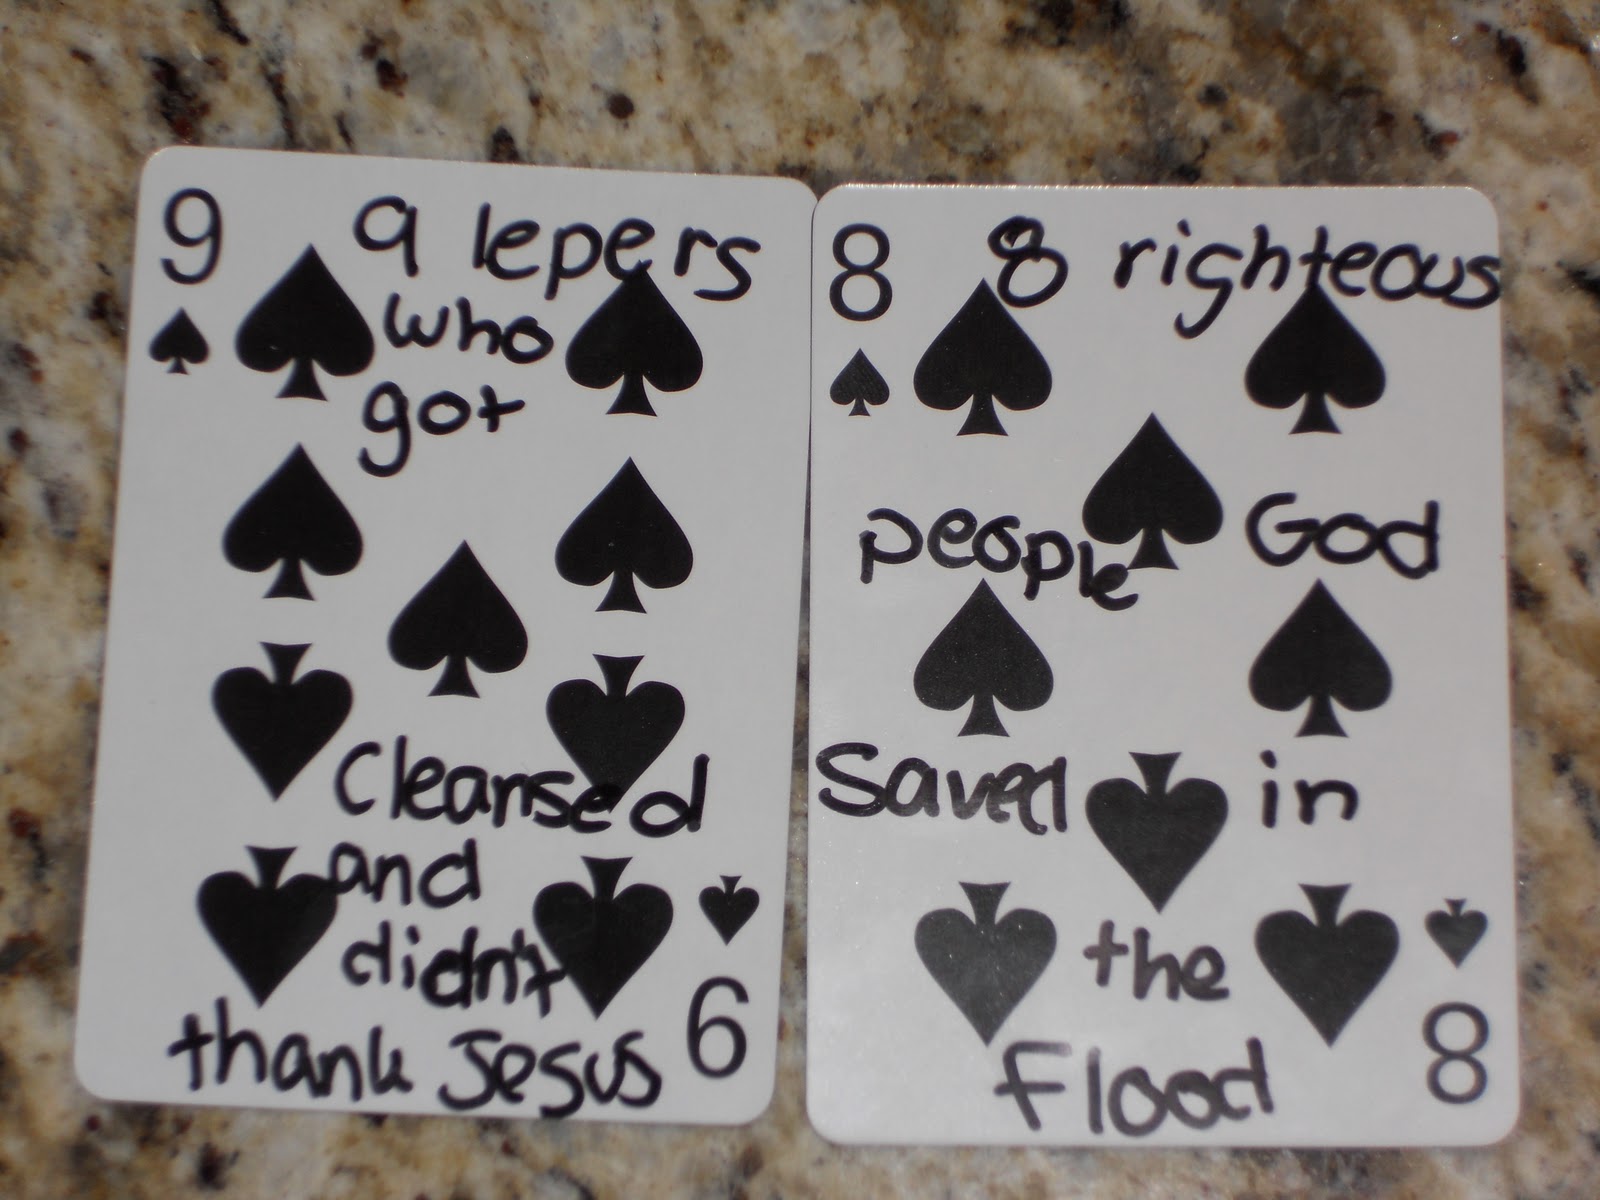 9 9 lepers
who
got
cleansed
and
didn't
thank Jesus
9
8 8 righteous
people God
saved in
the
Flood
8